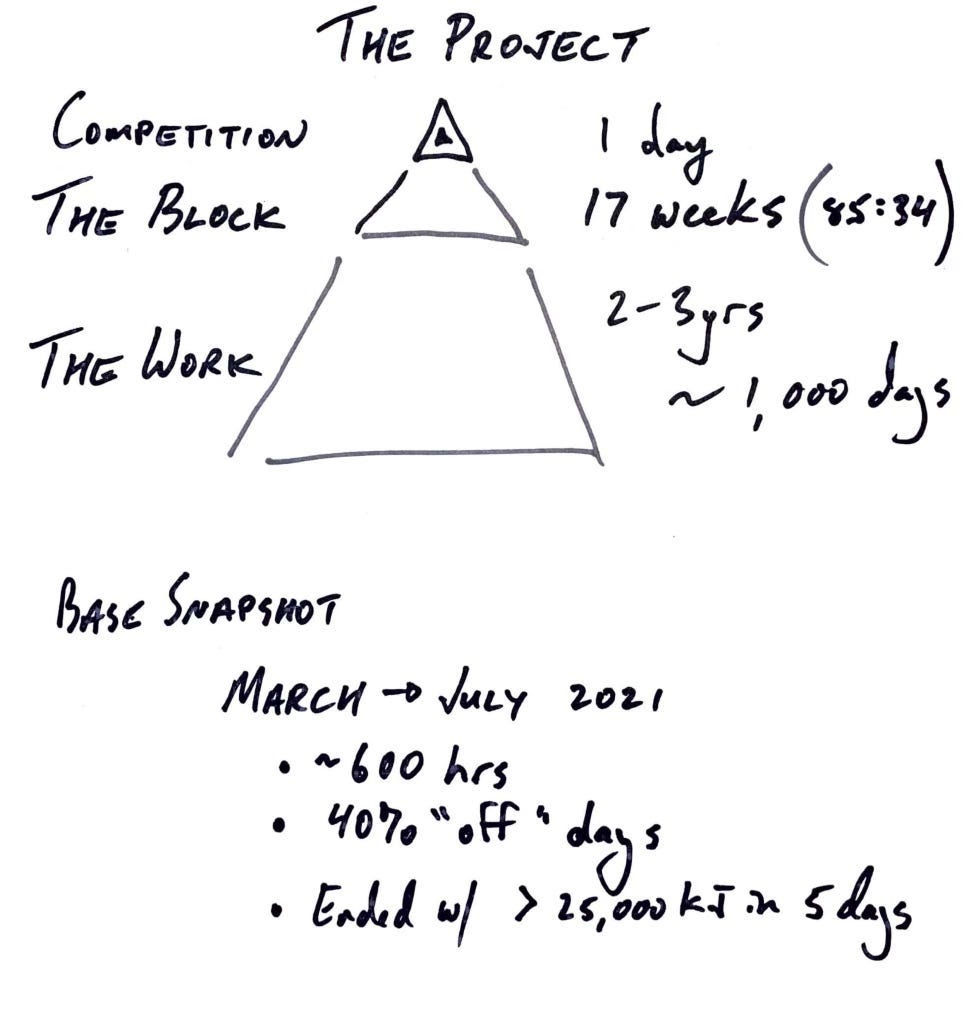 THE PROJECT
COMPETITION 1 day
THE BLOCK 17 weeks (85:34)
THE WORK 2-3yrs
~ 1,000 days
BASE SNAPSHOT
MARCH → JULY 2021
• ~600 hrs
• 40% "off" days
• Ended w/ > 25,000 kJ in 5 days